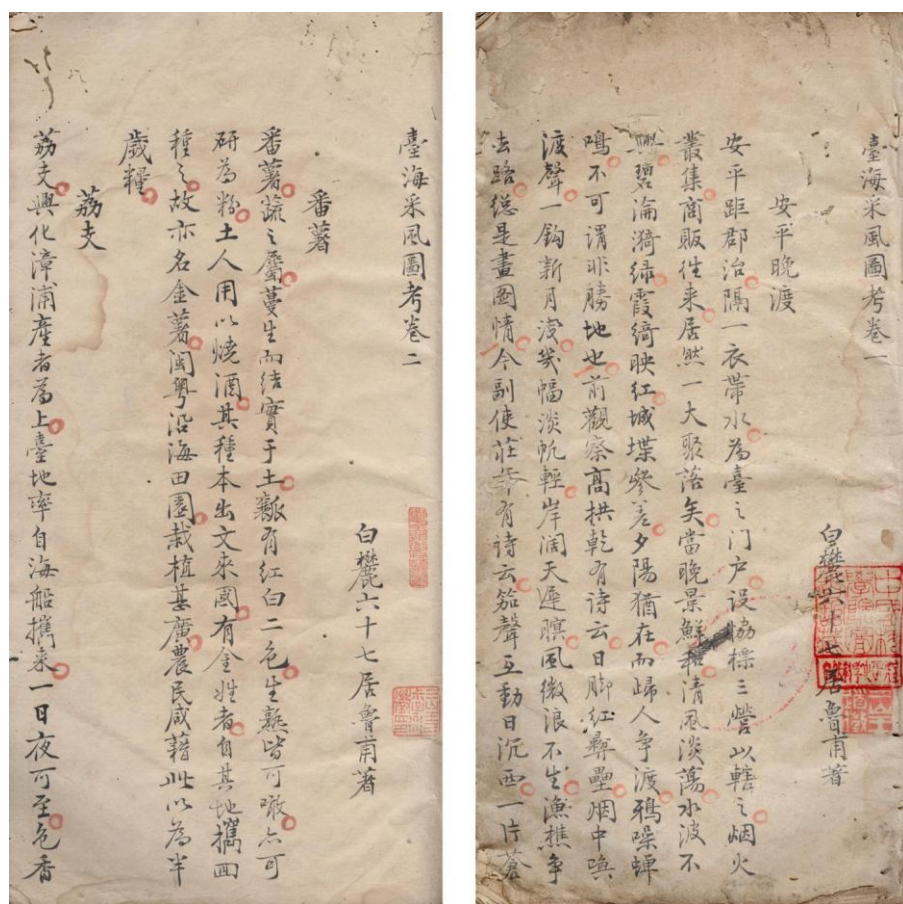 臺海采風圖考卷一
白麓六十七居魯甫著
安平晚渡
安平距郡治隔一衣帶水為臺之门户设協標三營以轄之烟火
叢集商販往来居然一大聚落矣當晚景鮮和清風淡蕩水波不
興碧淪漪绿霞綺映红城堞參差夕陽猶在而歸人争渡鴉噪蟬
鳴不可謂非勝地也前觀察髙拱乾有诗云日脚红彝壘烟中喚
渡聲一鈎新月淺幾幅淡帆輕岸阔天遲暝風微浪不生漁樵争
去路總是畫圖情今副使莊年有诗云笳聲互動日沉西一片蒼
臺海采風圖考卷二
白麓六十七居魯甫著
番薯
番薯蔬之屬蔓生而结實于土瓤有红白二色生熟皆可噉亦可
研為粉土人用以烧酒其種本出文來國有金姓者自其地攜回
種之故亦名金薯闽粤沿海田園栽植甚廣農民咸藉此以為半
歲糧
荔支
荔支興化漳浦產者為上臺地率自海船攜来一日夜可至色香